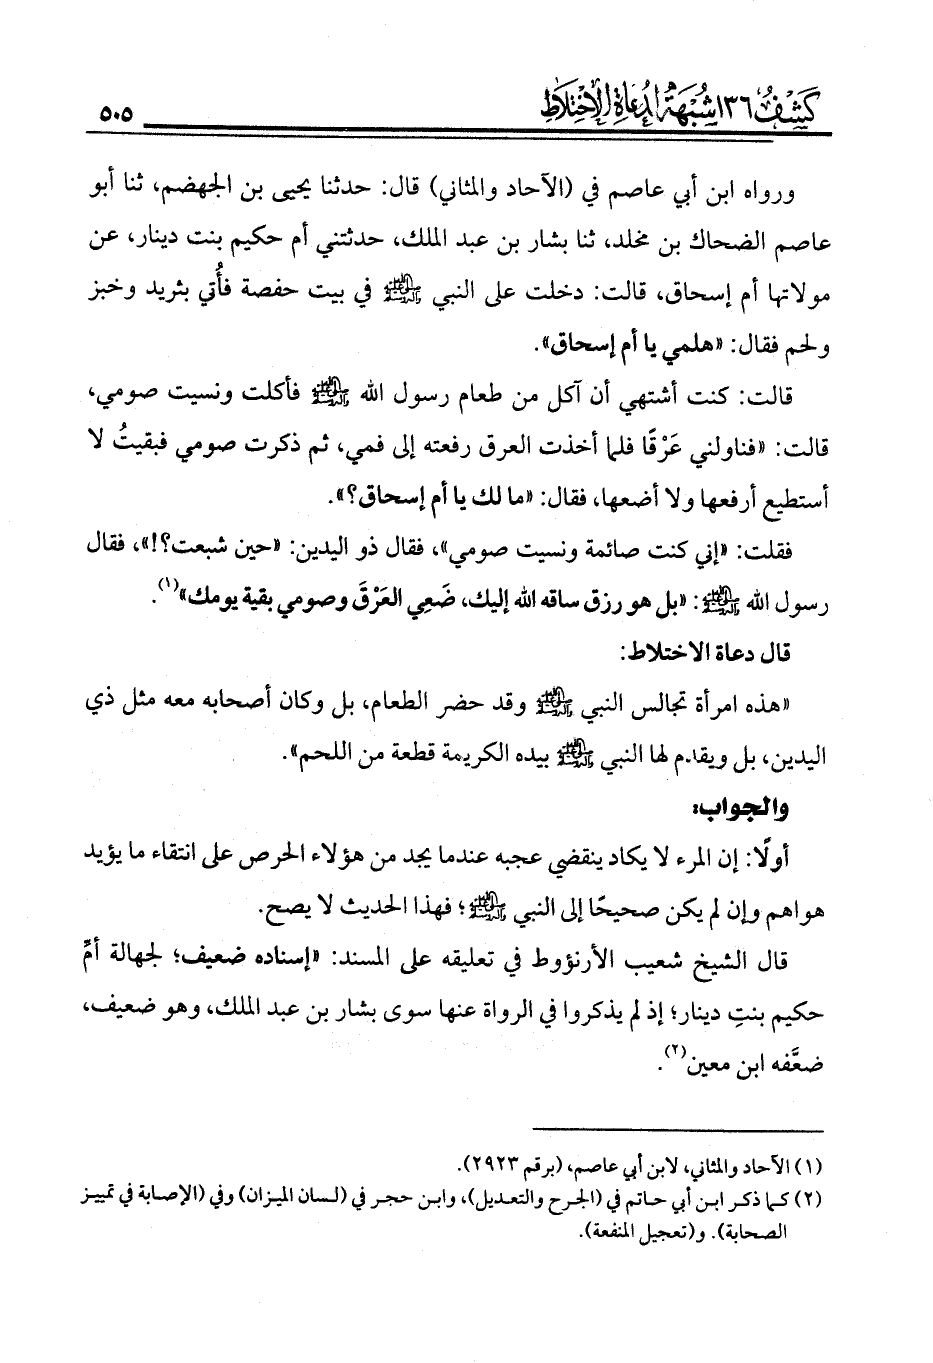 كشف ١٣٦ شبهة لدعاة الاختلاط ٥٠٥
ورواه ابن أبي عاصم في (الآحاد والمثاني) قال: حدثنا يحيى بن الجهضم، ثنا أبو
عاصم الضحاك بن مخلد، ثنا بشار بن عبد الملك، حدثتني أم حكيم بنت دينار، عن
مولاتها أم إسحاق، قالت: دخلت على النبي ﷺ في بيت حفصة فأُتي بثريد وخبز
ولحم فقال: «هلمي يا أم إسحاق».
قالت: كنت أشتهي أن آكل من طعام رسول الله ﷺ فأكلت ونسيت صومي،
قالت: «فناولني عَرْقًا فلما أخذت العرق رفعته إلى فمي، ثم ذكرت صومي فبقيتُ لا
أستطيع أرفعها ولا أضعها، فقال: «ما لك يا أم إسحاق؟».
فقلت: «إني كنت صائمة ونسيت صومي»، فقال ذو اليدين: «حين شبعت؟!»، فقال
رسول الله ﷺ: «بل هو رزق ساقه الله إليك، ضَعِي العَرْقَ وصومي بقية يومك»(١).
قال دعاة الاختلاط:
«هذه امرأة تجالس النبي ﷺ وقد حضر الطعام، بل وكان أصحابه معه مثل ذي
اليدين، بل ويقدم لها النبي ﷺ بيده الكريمة قطعة من اللحم».
والجواب:
أولًا: إن المرء لا يكاد ينقضي عجبه عندما يجد من هؤلاء الحرص على انتقاء ما يؤيد
هواهم وإن لم يكن صحيحًا إلى النبي ﷺ؛ فهذا الحديث لا يصح.
قال الشيخ شعيب الأرنؤوط في تعليقه على المسند: «إسناده ضعيف؛ لجهالة أمِّ
حكيم بنتِ دينار؛ إذ لم يذكروا في الرواة عنها سوى بشار بن عبد الملك، وهو ضعيف،
ضعَّفه ابن معين(٢).
(١) الآحاد والمثاني، لابن أبي عاصم، (برقم ٢٩٢٣).
(٢) كما ذكر ابن أبي حاتم في (الجرح والتعديل)، وابن حجر في (لسان الميزان) وفي (الإصابة في تمييز
الصحابة). و(تعجيل المنفعة).